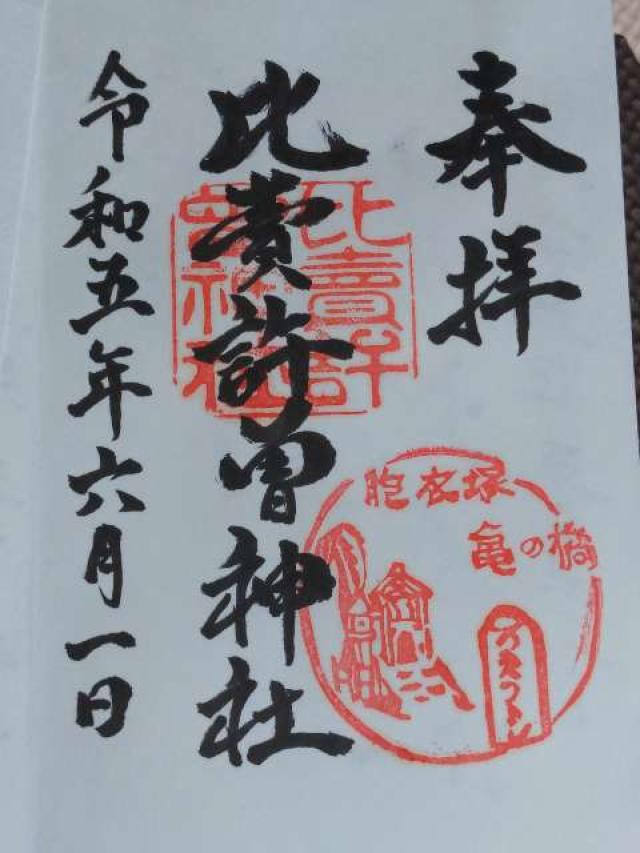 奉拝
比賣許曽神社
令和五年六月一日
比賣許
曽神社
胞衣塚
亀の橋